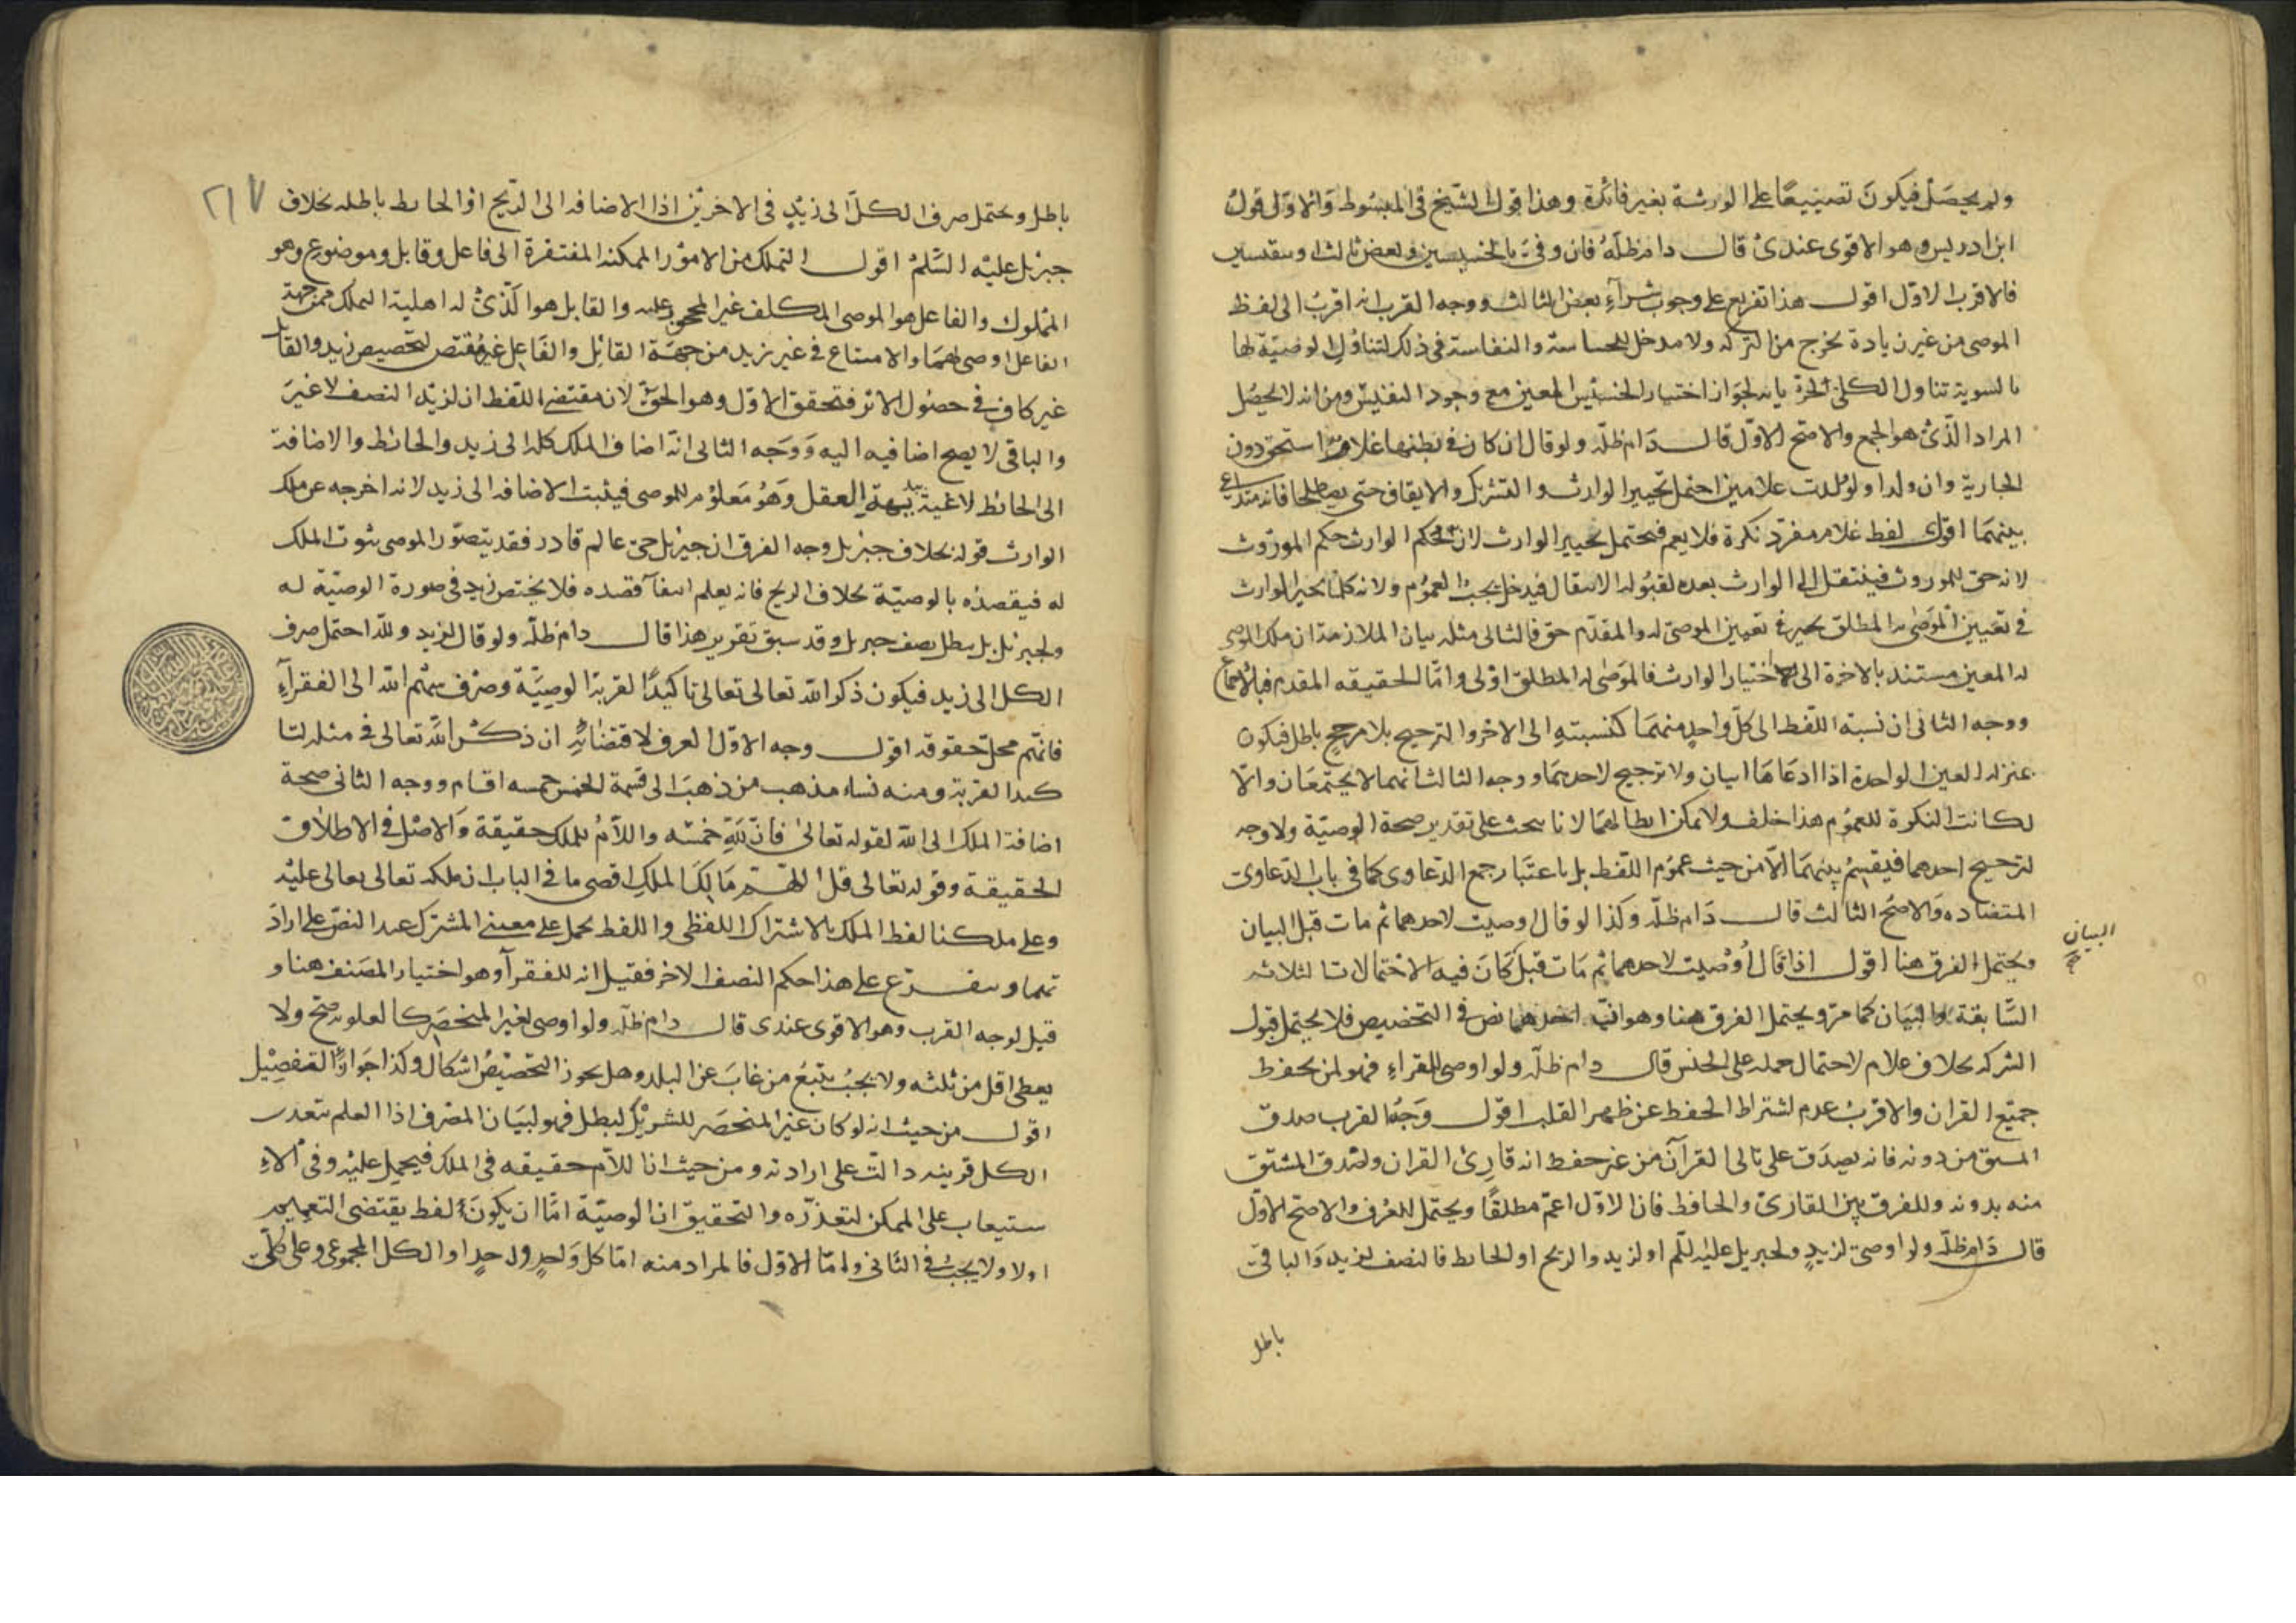 ولم يحصل فيكون تضييعا على الورثة بغير فائدة وهذا قول الشيخ في المبسوط والاول قول
ابن ادريس وهو الاقوى عندي قال دام ظله فان وفي بالخسيسين وبعض ثالث او بنفيسين
فالاقرب الاول اقول هذا تفريع على وجوب شراء بعض الثالث ووجه القرب انه اقرب الى لفظ
الموصي من غير زيادة تخرج من التركة ولا مدخل للخساسة والنفاسة في ذلك لتناول الوصية لها
بالسوية تناول الكلي لجزئياته لجواز اختيار الخسيس المعين مع وجود النفيس ومن انه لا يحصل
المراد الذي هو الجمع والاصح الاول قال دام ظله ولو قال ان كان في بطنها غلام استحق دون
الجارية وان ولدا ولو ولدت غلامين احتمل تخيير الوارث والتشريك والايقاف حتى يصطلحا فانه متداع
بينهما اقول لفظ غلام مفرد نكرة فلا يعم فيحتمل تخيير الوارث لان حكم الوارث حكم الموروث
لانه حق للموروث فينتقل الى الوارث بعده لقبوله الانتقال فيدخل تحت العموم ولانه كلما تخير الوارث
في تعيين الموصى به المطلق تخير في تعيين الموصى له والمقدم حق فالتالي مثله بيان الملازمة ان ملك الموصى
له المعين مستند بالاخرة الى اختيار الوارث فالموصى له المطلق اولى واما حقيقة المقدم فبالاجماع
ووجه الثاني ان نسبة اللفظ الى كل واحد منهما كنسبته الى الاخر والترجيح بلا مرجح باطل فيكون
بمنزلة العين الواحدة اذا ادعاها اثنان ولا ترجيح لاحدهما ووجه الثالث انهما لا يجتمعان والا
لكانت النكرة للعموم هذا خلف ولا يمكن ابطالهما لانا نبحث على تقدير صحة الوصية ولا وجه
لترجيح احدهما فيقسم بينهما لا من حيث عموم اللفظ بل باعتبار جمع الدعاوى كما في باب الدعاوى
المتضادة والاصح الثالث قال دام ظله وكذا لو قال اوصيت لاحدهما ثم مات قبل البيان
ويحتمل الفرق هنا اقول اذا قال اوصيت لاحدهما ثم مات قبل كان فيه الاحتمالات الثلاثة
البيان
السابقة والبيان كما مر ويحتمل الفرق هنا وهو ان احدهما نص في التخصيص فلا يحتمل قبول
الشركة بخلاف غلام لاحتمال حمله على الجنس قال دام ظله ولو اوصى للقراء فهو لمن يحفظ
جميع القران والاقرب عدم اشتراط الحفظ عن ظهر القلب اقول وجه القرب صدق
المشتق من دونه فانه يصدق على تالي القرآن من غير حفظ انه قارئ القران ولصدق المشتق
منه بدونه وللفرق بين القارئ والحافظ فان الاول اعم مطلقا ويحتمل للعرف والاصح الاول
قال دام ظله ولو اوصى لزيد ولجبريل عليه السلم او لزيد والريح او الحائط فالنصف لزيد والباقي
باطل
٢١٧
باطل ويحتمل صرف الكل الى زيد في الاخرين اذ الاضافة الى الريح او الحائط باطلة بخلاف
جبرئل عليه السلم اقول التملك من الامور الممكنة المفتقرة الى فاعل وقابل وموضوع وهو
المملوك والفاعل هو الموصي المكلف غير المحجور عليه والقابل هو الذي له اهلية التملك فمن جهة
الفاعل اوصى لهما والامتناع في غير زيد من جهة القابل والفاعل غير مقتض لتخصيص زيد والقابل
غير كاف في حصول الاثر فتحقق الاول وهو الحق لان مقتضى اللفظ ان لزيد النصف لا غير
والباقي لا يصح اضافته اليه ووجه الثاني انه اضاف الملك كله الى زيد والحائط والاضافة
الى الحائط لاغية ببديهة العقل وهو معلوم للموصي فيثبت الاضافة الى زيد لانه اخرجه عن ملك
الوارث قوله بخلاف جبرئل وجه الفرق ان جبرئل حي عالم قادر فقد يتصور الموصي ثبوت الملك
له فيقصده بالوصية بخلاف الريح فانه يعلم انتفآء قصده فلا يختص زيد في صورة الوصية له
ولجبرئل بل يبطل نصف جبرئل وقد سبق تقرير هذا قال دام ظله ولو قال لزيد ولله احتمل صرف
الكل الى زيد فيكون ذكر الله تعالى تعالى تاكيدا لقربة الوصية وصرف سهم الله الى الفقرآء
فانهم محل حقوقه اقول وجه الاول العرف لاقتضائه ان ذكر الله تعالى في مثله لتا
كيد القربة ومنه نشاء مذهب من ذهب الى قسمة الخمس خمسة اقسام ووجه الثاني صحة
اضافة الملك الى الله لقوله تعالى فان لله خمسه واللام للملك حقيقة والاصل في الاطلاق
الحقيقة وقوله تعالى قل اللهم مالك الملك اقصى ما في الباب ان ملكه تعالى يعالى عليه
وعلى ملكنا لفظ الملك بالاشتراك اللفظي واللفظ يحمل على معنيي المشترك عند النص على اراد
تهما ويتفرع على هذا حكم النصف الاخر فقيل انه للفقرآ وهو اختيار المصنف هنا و
قيل لوجه القرب وهو الاقوى عندي قال دام ظله ولو اوصى لغير المنحصر كالعلوية صح ولا
يعطى اقل من ثلثة ولا يجب تتبع من غاب عن البلد وهل يجوز التخصيص اشكال وكذا جواز التفضيل
اقول من حيث انه لو كان غير المنحصر للتشريك لبطل فهو لبيان المصرف اذ العلم بتعذر
الكل قرينة دالة على ارادته ومن حيث ان اللام حقيقة في الملك فيحمل عليه وفي الا
ستيعاب على الممكن لتعذره والتحقيق ان الوصية اما ان يكون لفظ يقتضي التعميم
اولا ولا يجب في الثاني واما الاول فالمراد منه اما كل واحد واحد او الكل المجموعي وعلى كلي